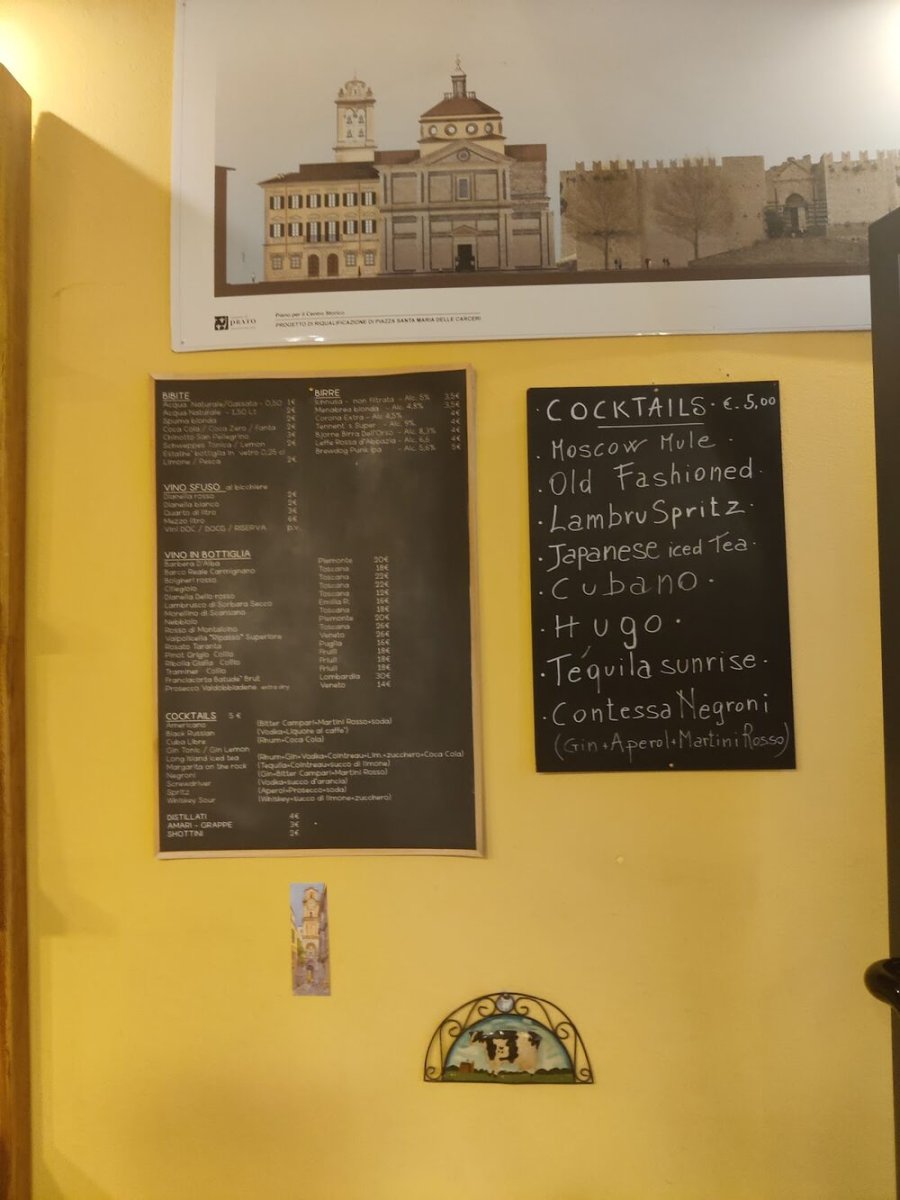 PRATO
Piano per il Centro Storico
PROGETTO DI RIQUALIFICAZIONE DI PIAZZA SANTA MARIA DELLE CARCERI
BIBITE
Acqua Naturale/Gassata - 0,50 1€
Acqua Naturale - 1,50 Lt 2€
Spuma bionda 2€
Coca Cola / Coca Zero / Fanta 2€
Chinotto San Pellegrino 3€
Schweppes Tonica / Lemon 2€
Estathe' bottiglia in vetro 0,25 cl
Limone / Pesca 2€
BIRRE
Ichnusa - non filtrata - Alc. 5% 3,5€
Menabrea bionda - Alc. 4,8% 3,5€
Corona Extra - Alc. 4,5% 4€
Tennent's Super - Alc. 9% 4€
Bjorne Birra Dell'Orso - Alc. 8,3% 4€
Leffe Rossa d'Abbazia - Alc. 6,6 4€
Brewdog Punk Ipa - Alc. 5,6% 5€
VINO SFUSO al bicchiere
Dianella rosso 2€
Dianella bianco 2€
Quarto di litro 3€
Mezzo litro 6€
Vini DOC / DOCG / RISERVA p.v.
VINO IN BOTTIGLIA
Barbera D'Alba Piemonte 20€
Barco Reale Carmignano Toscana 18€
Bolgheri rosso Toscana 22€
Ciliegiolo Toscana 22€
Dianella Dello rosso Toscana 12€
Lambrusco di Sorbara Secco Emilia R. 16€
Morellino di Scansano Toscana 18€
Nebbiolo Piemonte 20€
Rosso di Montalcino Toscana 26€
Valpolicella "Ripasso" Superiore Veneto 26€
Rosato Taranta Puglia 16€
Pinot Grigio Collio Friuli 18€
Ribolla Gialla Collio Friuli 18€
Traminer Collio Friuli 18€
Franciacorta Brut Lombardia 30€
Prosecco Valdobbiadene extra dry Veneto 14€
COCKTAILS 5 €
Americano (Bitter Campari+Martini Rosso+soda)
Black Russian (Vodka+Liquore al caffe')
Cuba Libre (Rhum+Coca Cola)
Gin Tonic / Gin Lemon
Long Island iced tea (Rhum+Gin+Vodka+Cointreau+Lim.+zucchero+Coca Cola)
Margarita on the rock (Tequila+Cointreau+succo di limone)
Negroni (Gin+Bitter Campari+Martini Rosso)
Screwdriver (Vodka+succo d'arancia)
Spritz (Aperol+Prosecco+soda)
Whiskey Sour (Whiskey+succo di limone+zucchero)
DISTILLATI 4€
AMARI - GRAPPE 3€
SHOTTINI 2€
· COCKTAILS · €. 5,00
· Moscow Mule ·
· Old Fashioned ·
· Lambru Spritz ·
· Japanese iced Tea ·
· Cubano ·
· Hugo ·
· Téquila sunrise ·
· Contessa Negroni
(Gin+Aperol+Martini Rosso)